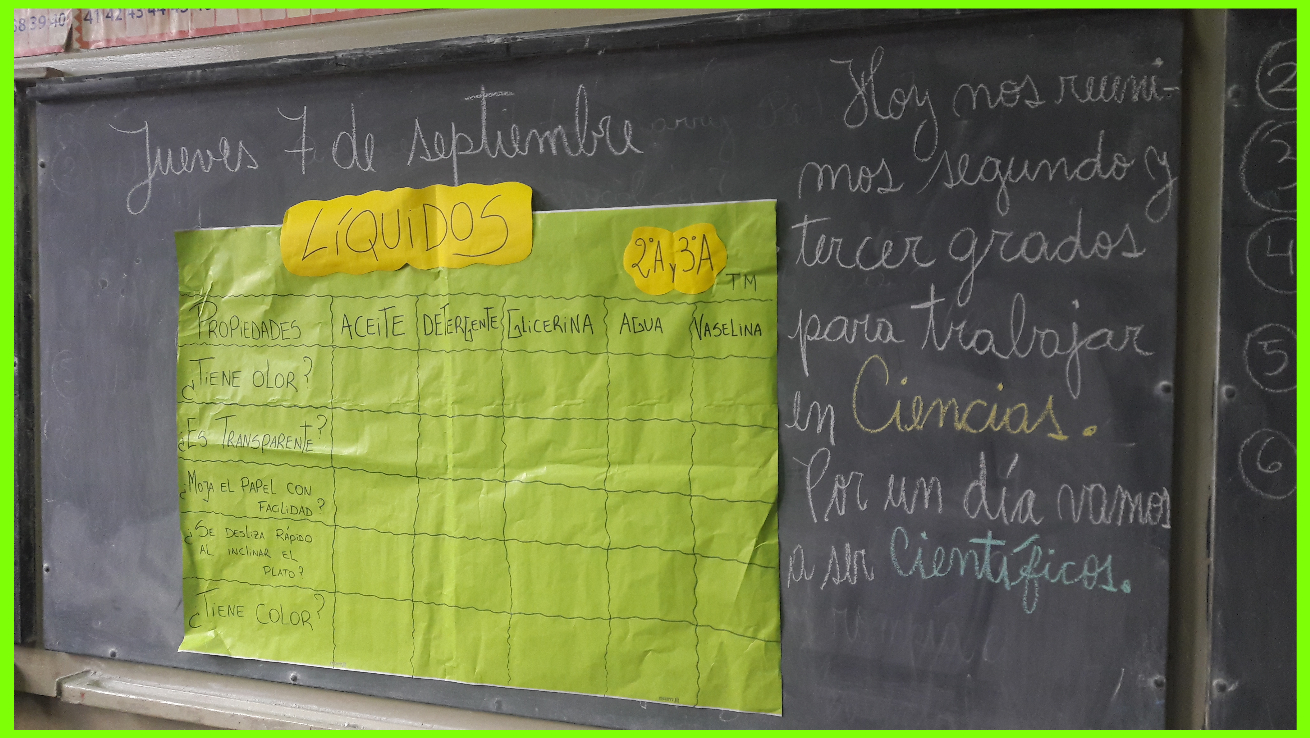 38 39 40
41 42 43 44 45
Jueves 7 de septiembre
LÍQUIDOS
2°A y 3°A
TM
PROPIEDADES ACEITE DETERGENTE GLICERINA AGUA VASELINA
¿TIENE OLOR?
¿ES TRANSPARENTE?
¿MOJA EL PAPEL CON
FACILIDAD?
¿SE DESLIZA RÁPIDO
AL INCLINAR EL
PLATO?
¿TIENE COLOR?
Hoy nos reuni-
mos segundo y
tercer grados
para trabajar
en Ciencias.
Por un día vamos
a ser Científicos.
2
3
4
5
6